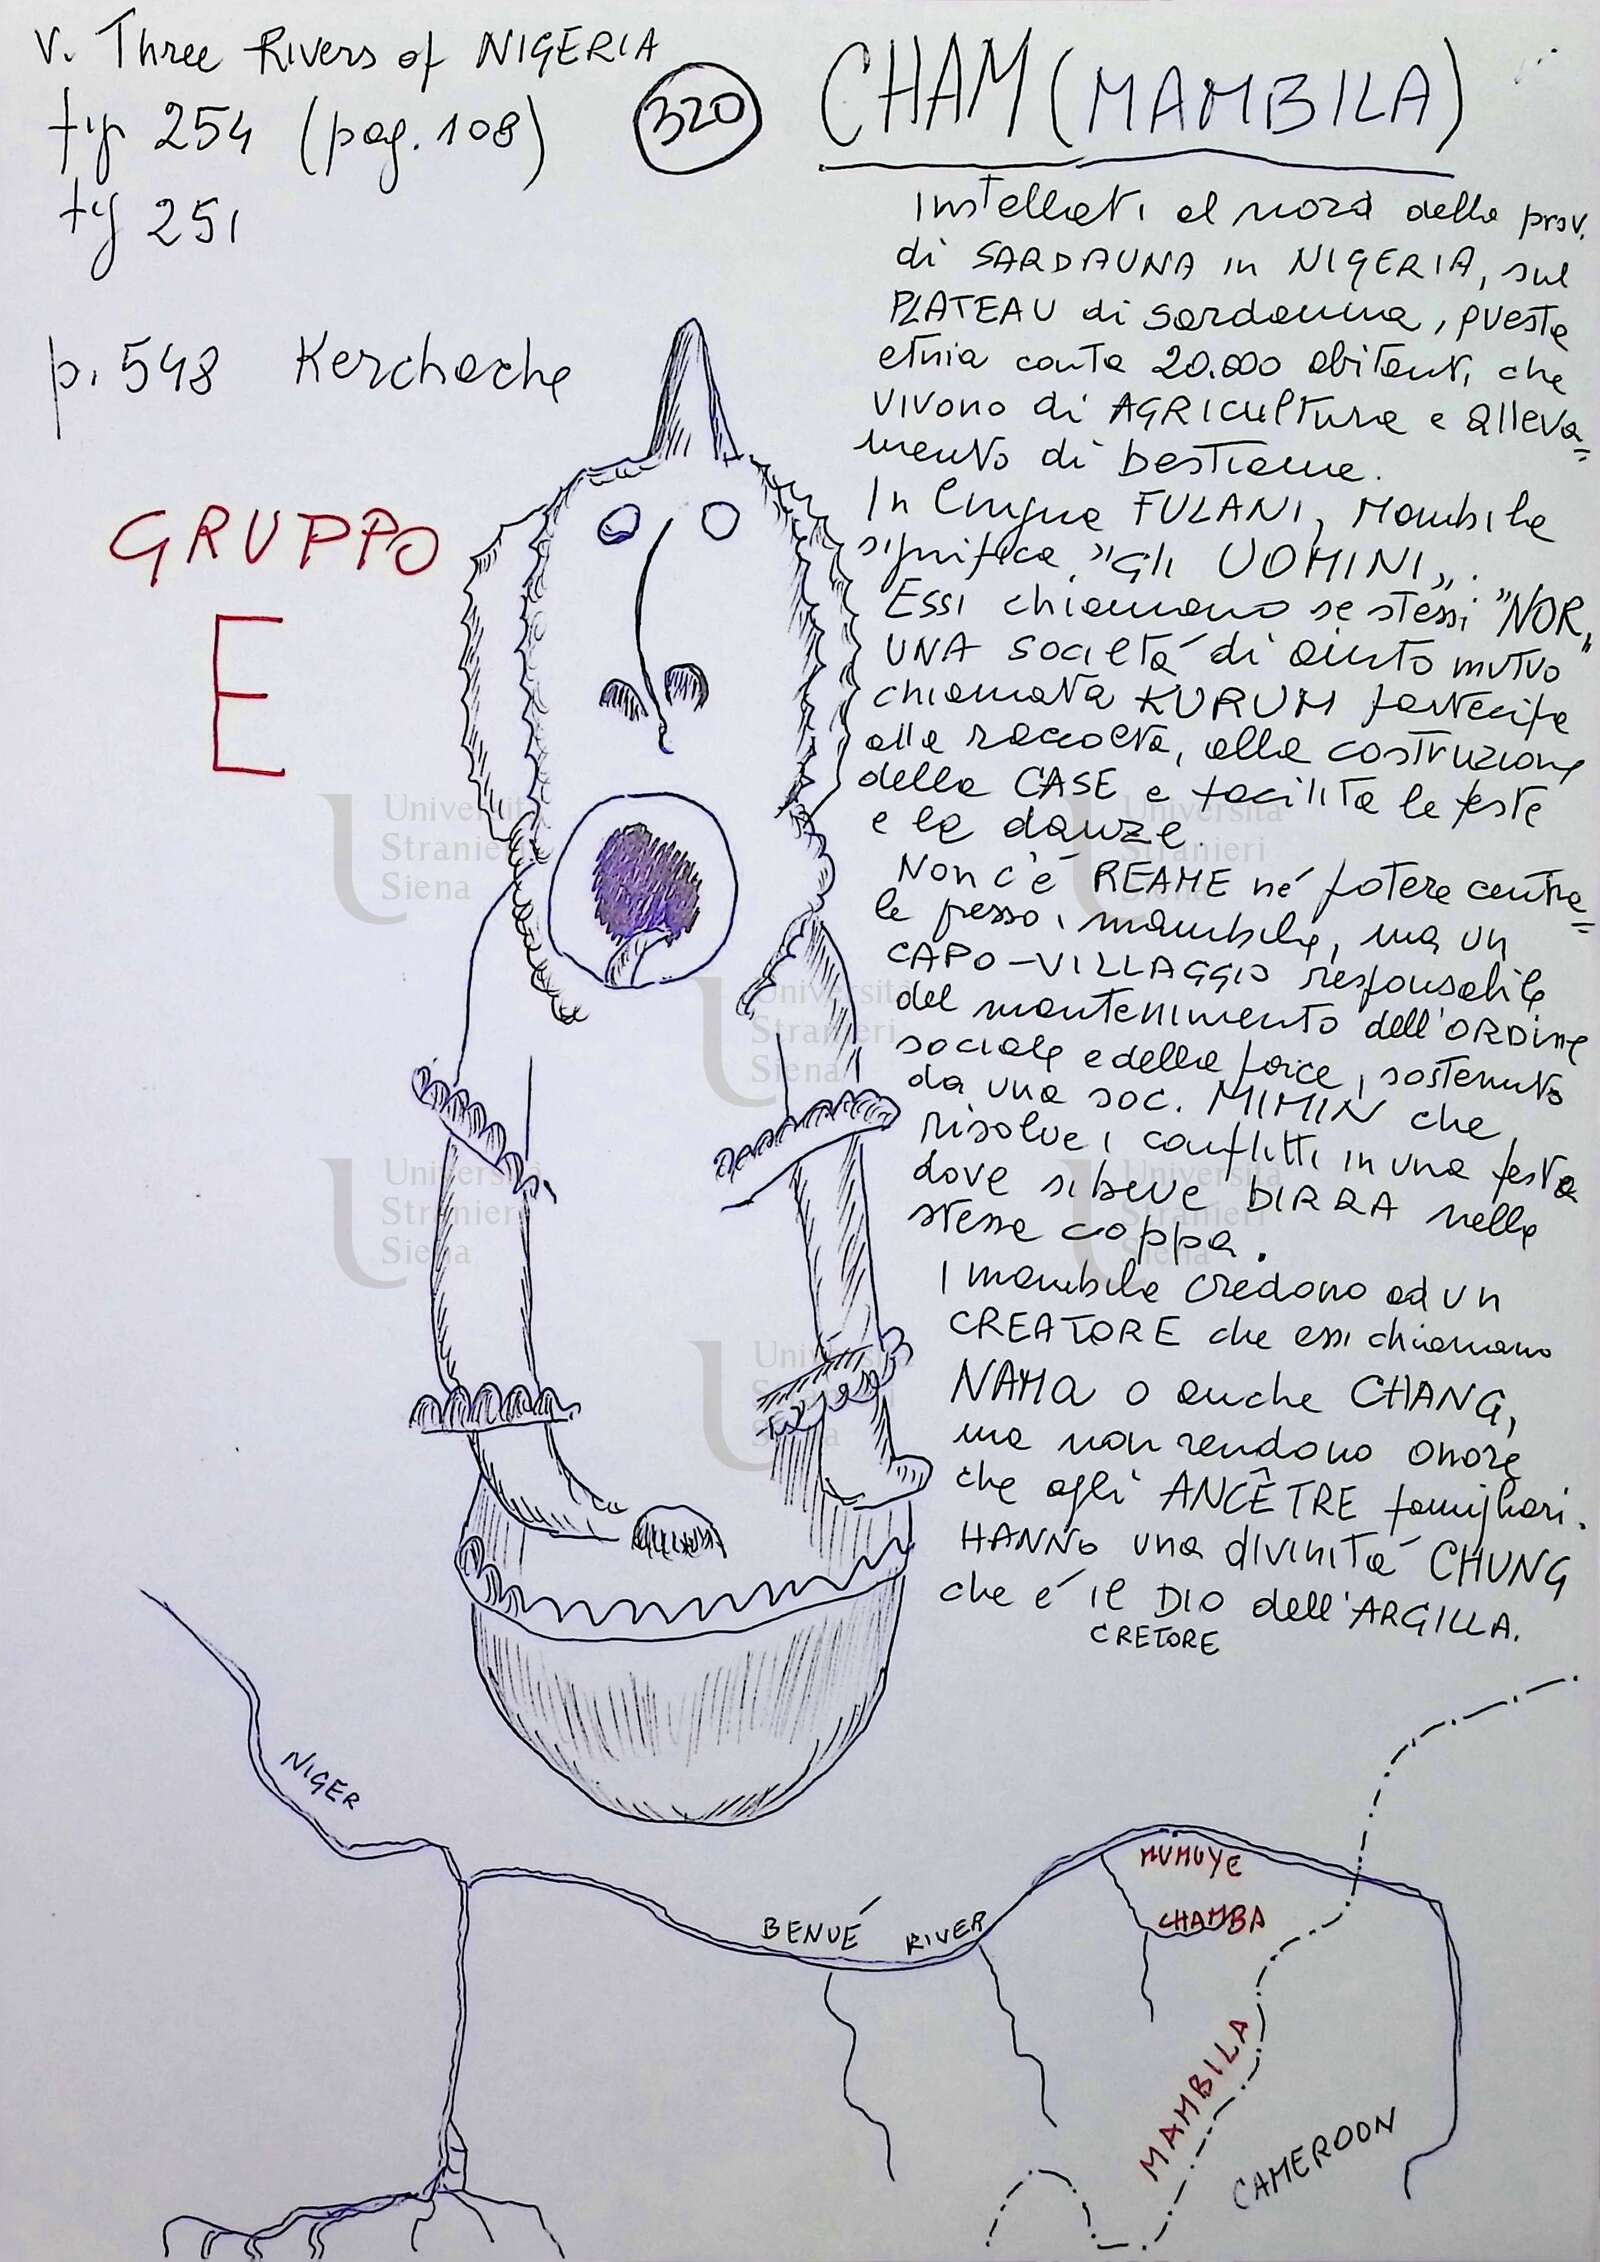 v. Three Rivers of NIGERIA
fig 254 (pag. 108)
fig 251
320
CHAM (MAMBILA)
p. 548 Kerchache
GRUPPO
E
Installati al nord della prov.
di SARDAUNA in NIGERIA, sul
PLATEAU di Sardauna, questa
etnia conta 20.000 abitanti, che
vivono di AGRICULTURA e alleva=
mento di bestiame.
In lingua FULANI, Mambila
significa "Gli UOMINI".
Essi chiamano se stessi "NOR"
UNA società di aiuto mutuo
chiamata KURUM partecipa
alla raccolta, alla costruzione
delle CASE e facilita le feste
e le danze.
Non c'è REAME né potere centra=
le presso i mambila, ma un
CAPO-VILLAGGIO responsabile
del mantenimento dell'ORDINE
sociale e della pace, sostenuto
da una soc. MIMIN che
risolve i conflitti in una festa
dove si beve BIRRA nella
stessa coppa.
I mambila credono ad un
CREATORE che essi chiamano
NAMA o anche CHANG,
ma non rendono onore
che agli ANCÊTRE famigliari.
HANNO una divinità CHUNG
che é il DIO dell'ARGILLA.
CRETORE
NIGER
BENUÉ RIVER
MUMUYE
CHAMBA
MAMBILA
CAMEROON
Università
Stranieri
Siena
Università
Stranieri
Siena
Università
Stranieri
Siena
Università
Stranieri
Siena
Università
Stranieri
Siena
Università
Siena